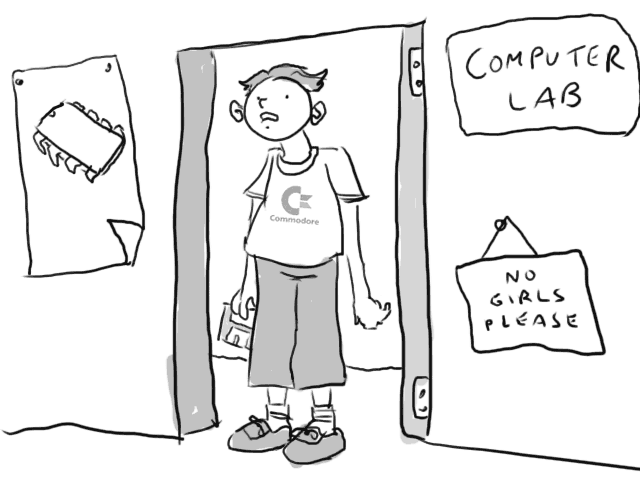 COMPUTER
LAB
Commodore
NO
GIRLS
PLEASE